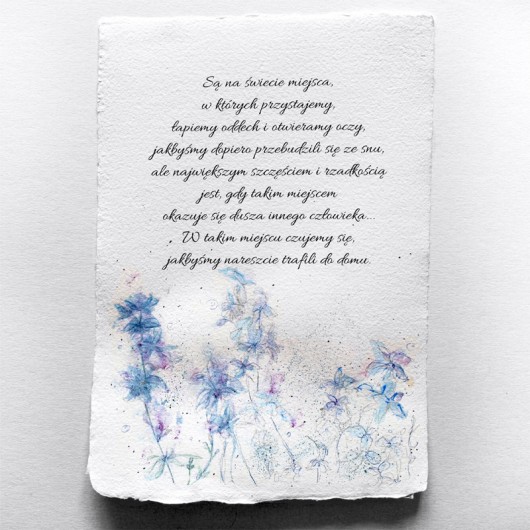 Są na świecie miejsca,
w których przystajemy,
łapiemy oddech i otwieramy oczy,
jakbyśmy dopiero przebudzili się ze snu,
ale największym szczęściem i rzadkością
jest, gdy takim miejscem
okazuje się dusza innego człowieka...
W takim miejscu czujemy się,
jakbyśmy nareszcie trafili do domu.